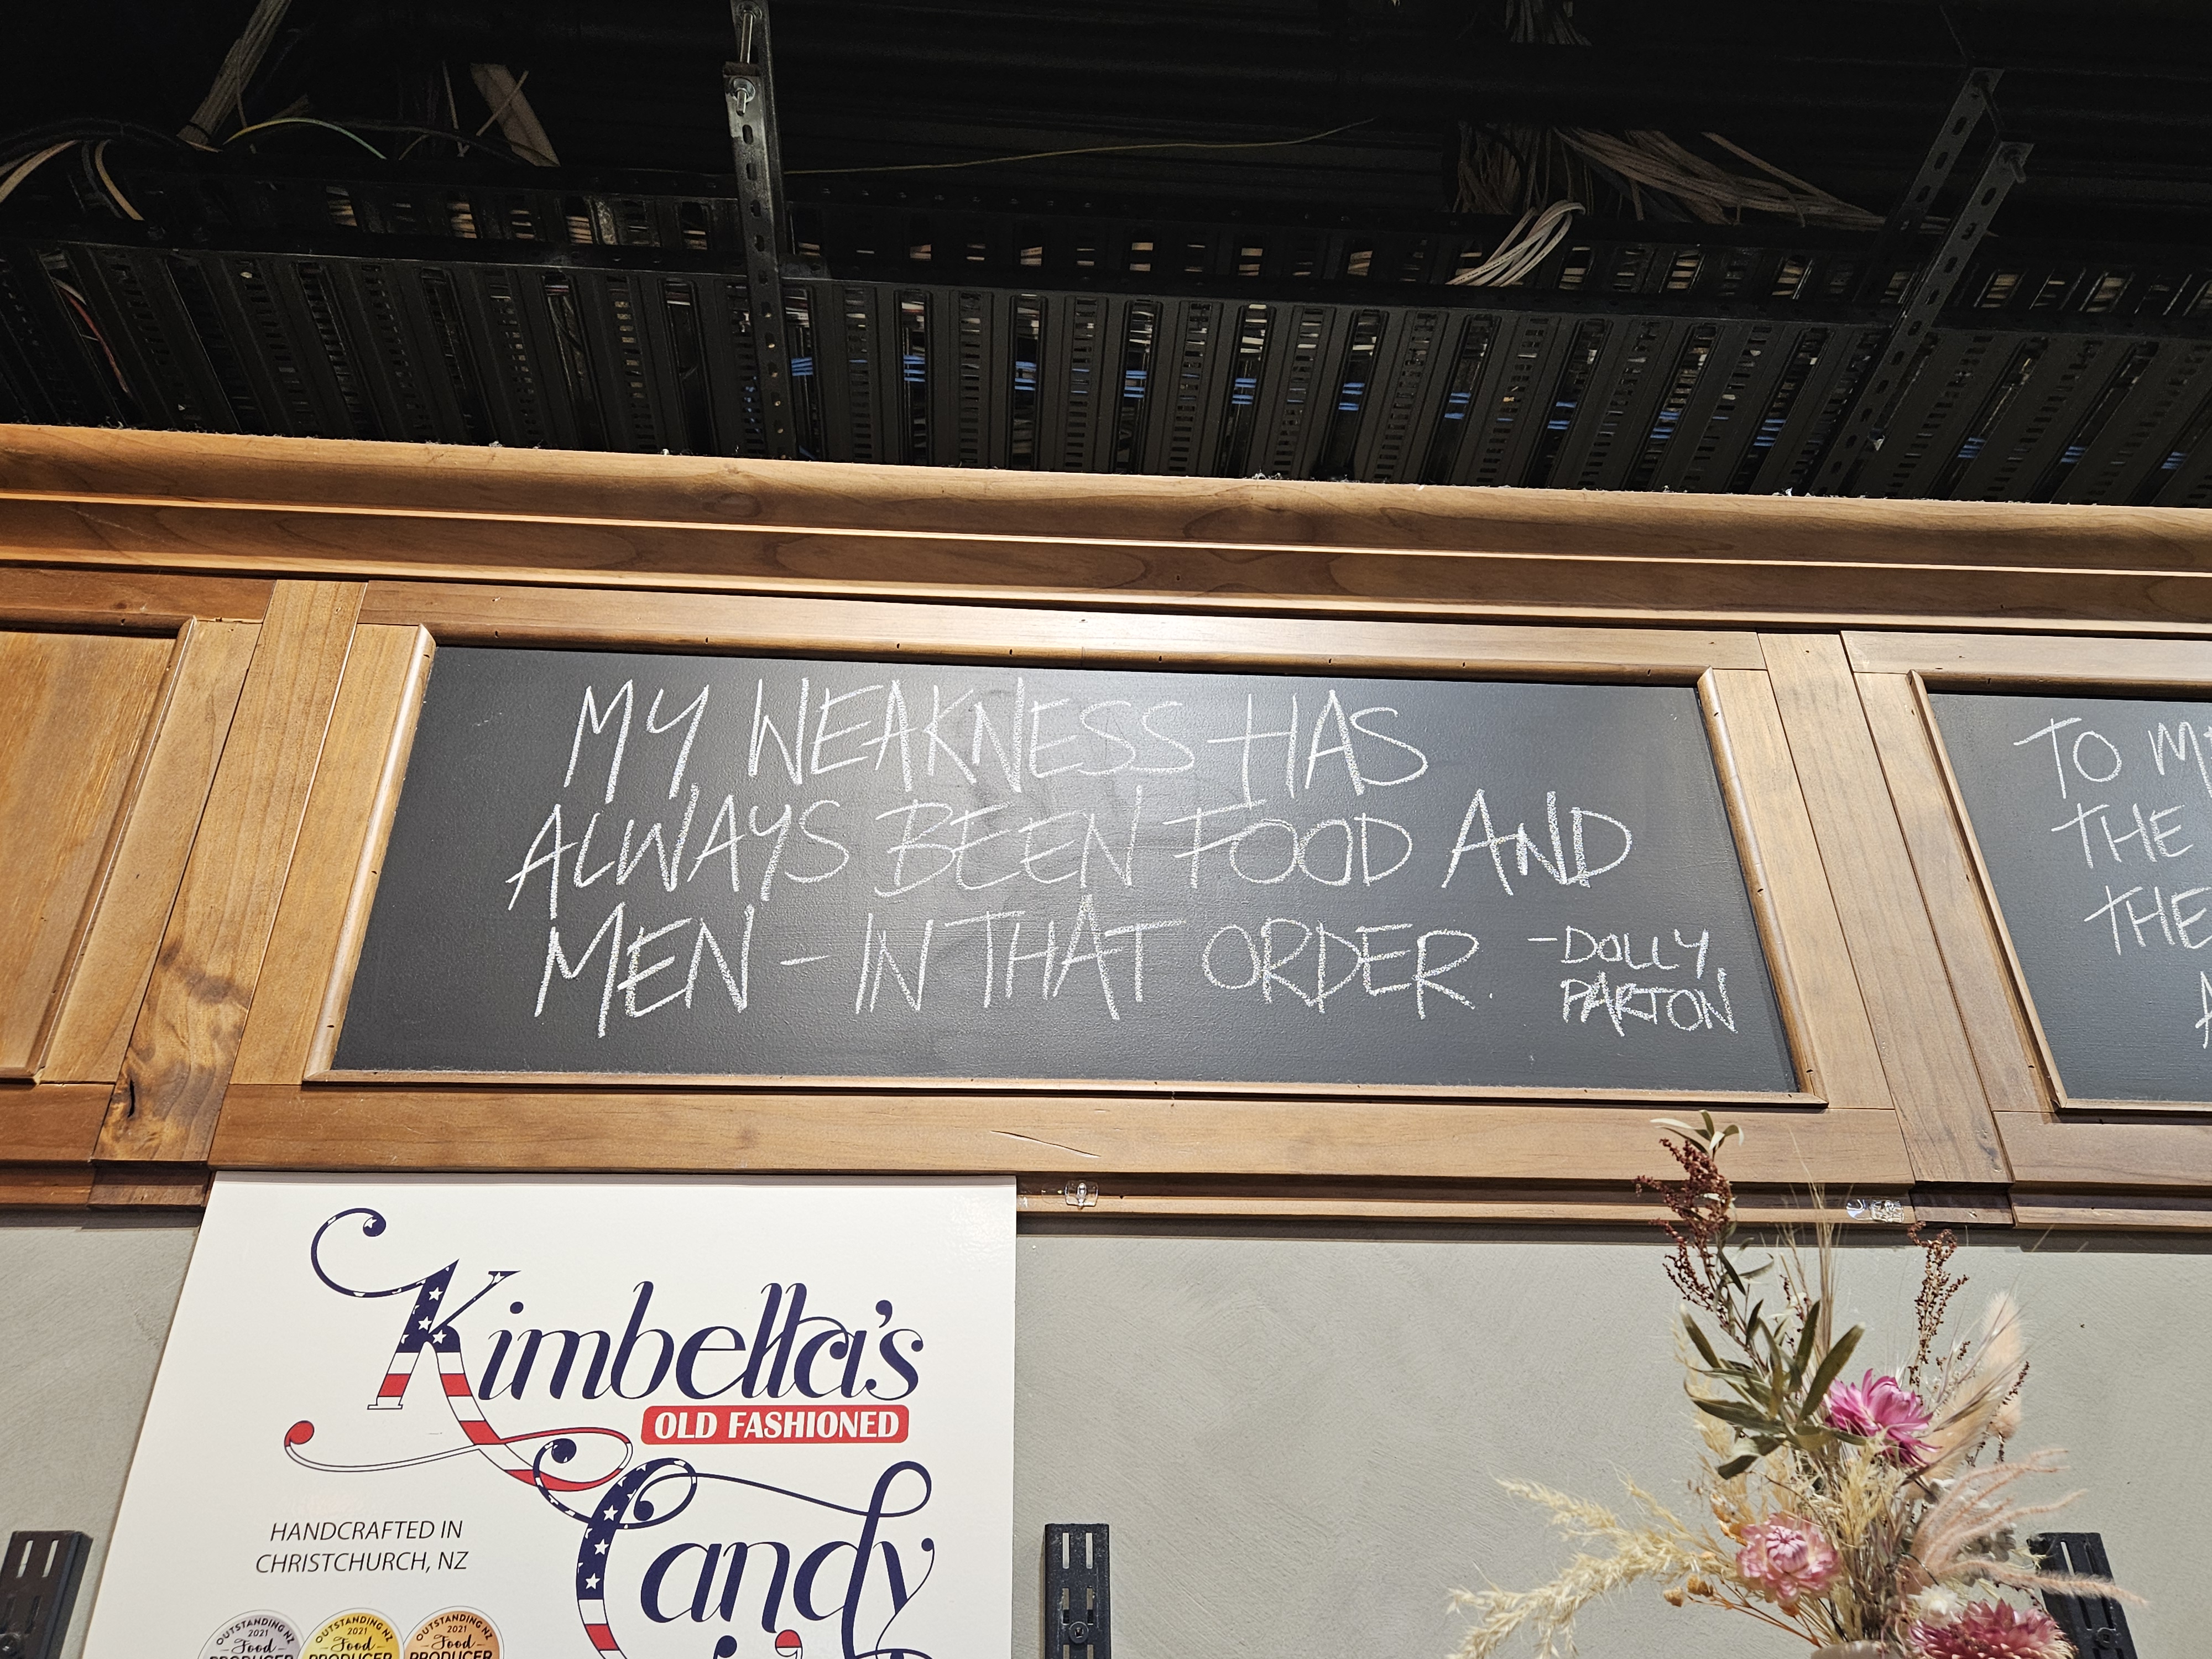 MY WEAKNESS HAS
ALWAYS BEEN FOOD AND
MEN - IN THAT ORDER. -DOLLY
PARTON
TO
THE
THE
Kimbella's
OLD FASHIONED
Candy
HANDCRAFTED IN
CHRISTCHURCH, NZ
OUTSTANDING NZ
2021
Food
PRODUCER
OUTSTANDING NZ
2021
Food
PRODUCER
OUTSTANDING NZ
2021
Food
PRODUCER